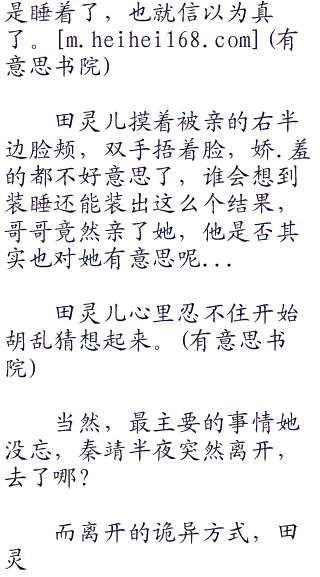 是睡着了，也就信以为真
了。[m.heihei168.com](有
意思书院)
田灵儿摸着被亲的右半
边脸颊，双手捂着脸，娇.羞
的都不好意思了，谁会想到
装睡还能装出这么个结果，
哥哥竟然亲了她，他是否其
实也对她有意思呢...
田灵儿心里忍不住开始
胡乱猜想起来。(有意思书
院)
当然，最主要的事情她
没忘，秦靖半夜突然离开，
去了哪？
而离开的诡异方式，田
灵